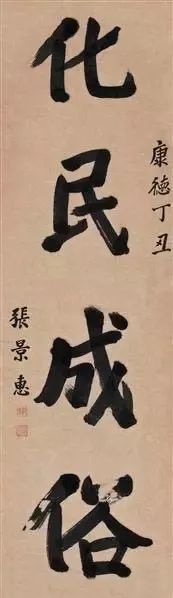 康德丁丑
化民成俗
張景惠